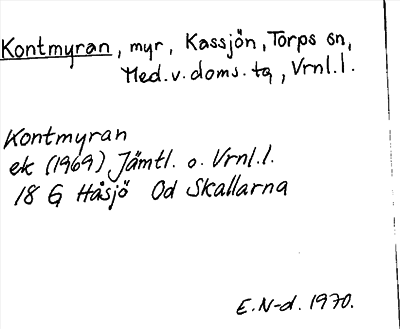 Kontmyran, myr, Kassjön, Torps sn,
Med. v. doms. tg, Vrnl. l.
Kontmyran
ek (1969) Jämtl. o. Vrnl. l.
18 G Håsjö Od Skallarna
E. N-d. 1970.